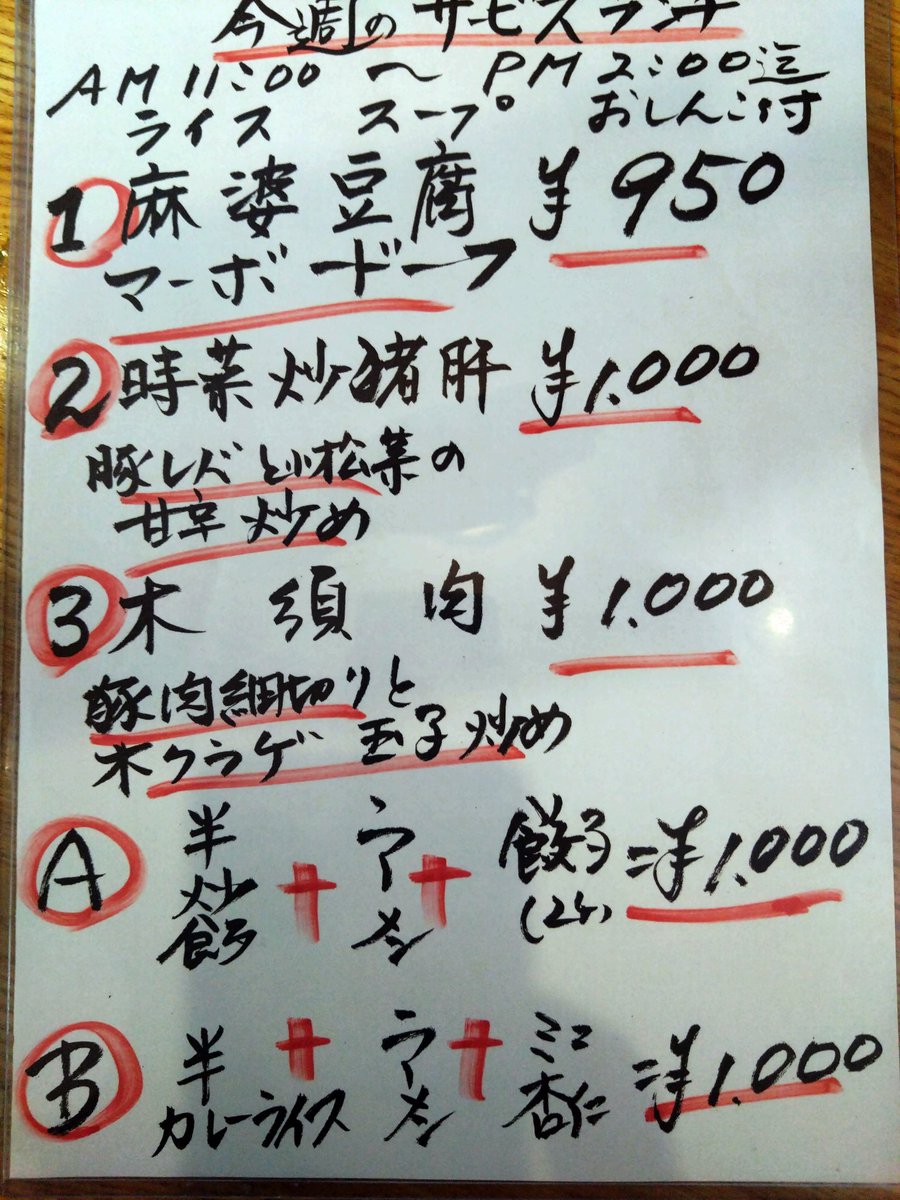 今週のサービスランチ
AM 11:00 〜 PM 2:00迄
ライス スープ おしんこ付
1 麻婆豆腐 ¥950
マーボードーフ
2 時菜炒猪肝 ¥1.000
豚レバと小松菜の
甘辛炒め
3 木須肉 ¥1.000
豚肉細切りと
木クラゲ玉子炒め
A 半炒飯 + ラーメン + 餃子(2ケ) ¥1.000
B 半カレーライス + ラーメン + ミニ杏仁 ¥1.000